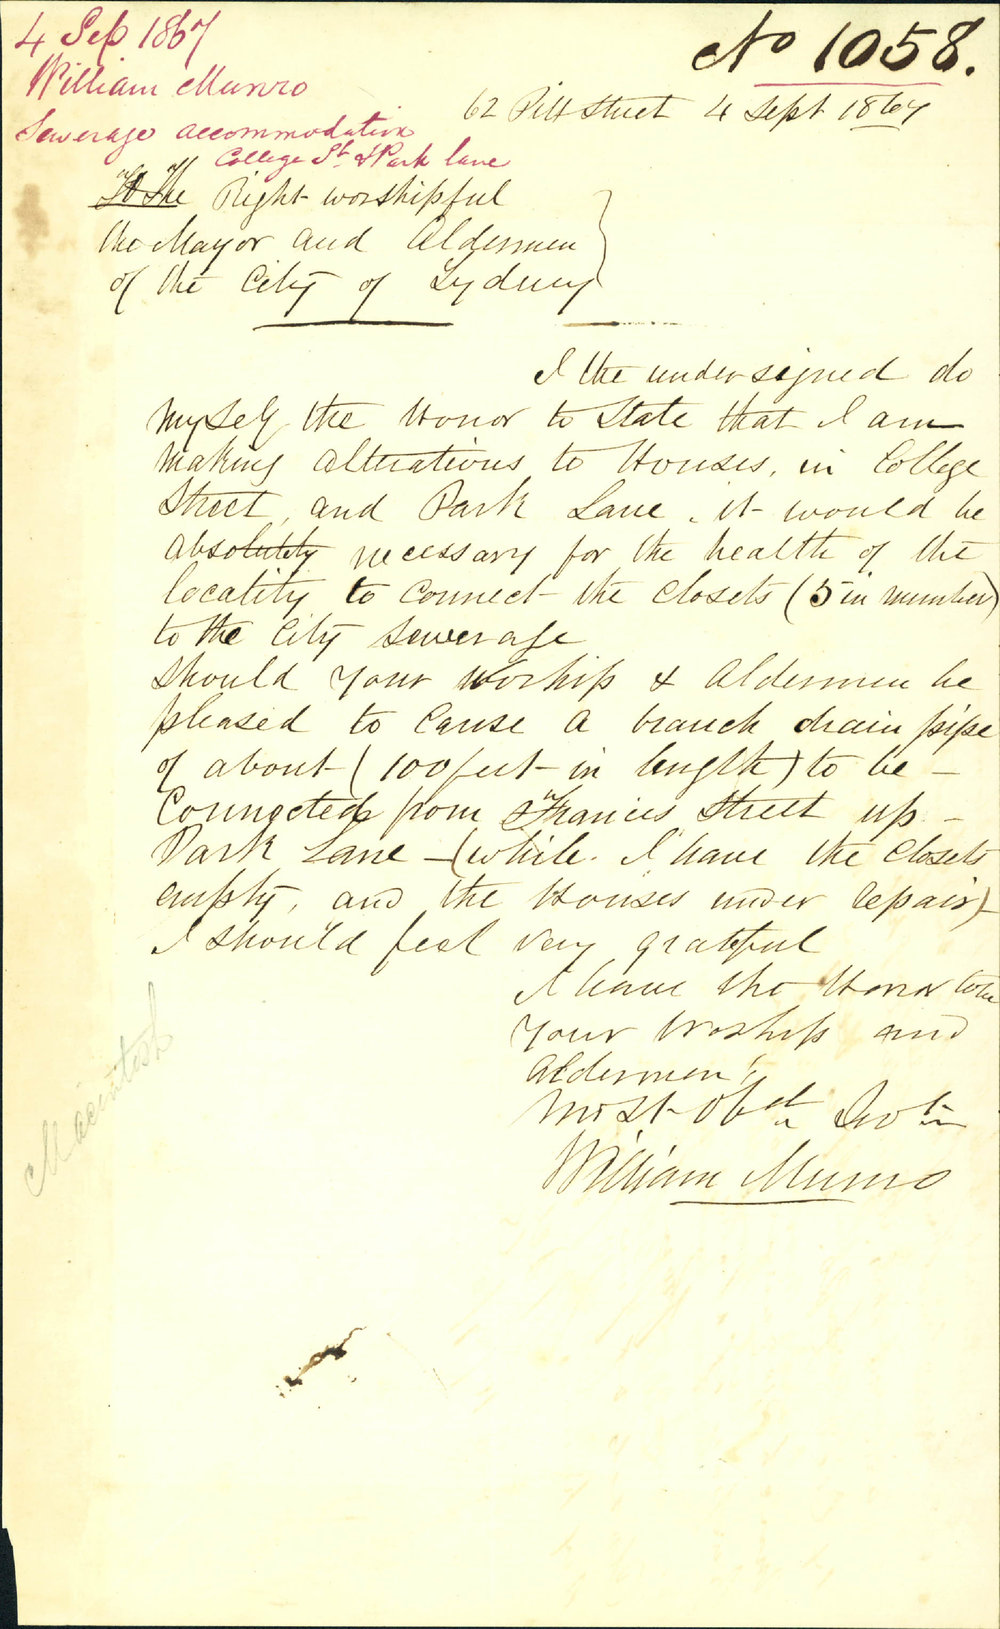 4 Sep 1867
William Munro
Sewerage accommodation
College St & Park lane
No 1058.
62 Pitt Street 4 Sept 1867
To The Right worshipful
the Mayor and Aldermen
of the City of Sydney
I the undersigned do
myself the Honor to State that I am
Making Alterations to Houses, in College
Street, and Park Lane, it would be
absolutely necessary for the health of the
locality to Connect the Closets (5 in number)
to the City Sewerage
Should Your Worship & Aldermen be
pleased to Cause a branch drain pipe
of about (100 feet in length) to be -
Connected from Francis Street up -
Park Lane - (while I have the Closets
empty, and the Houses under repair) -
I should feel very grateful
I have the Honor to be
Your Worship and
Aldermen's
Most Obdt Servt
William Munro
Macintosh